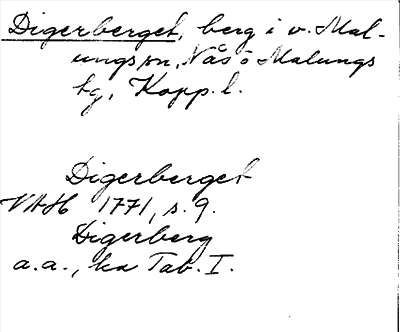 Digerberget, berg i v. Mal-
ungs sn, Nås o Malungs
tg, Kopp. l.
Digerberget
VAH 1771, s. 9.
Digerberg
a.a., ka Tab. I.